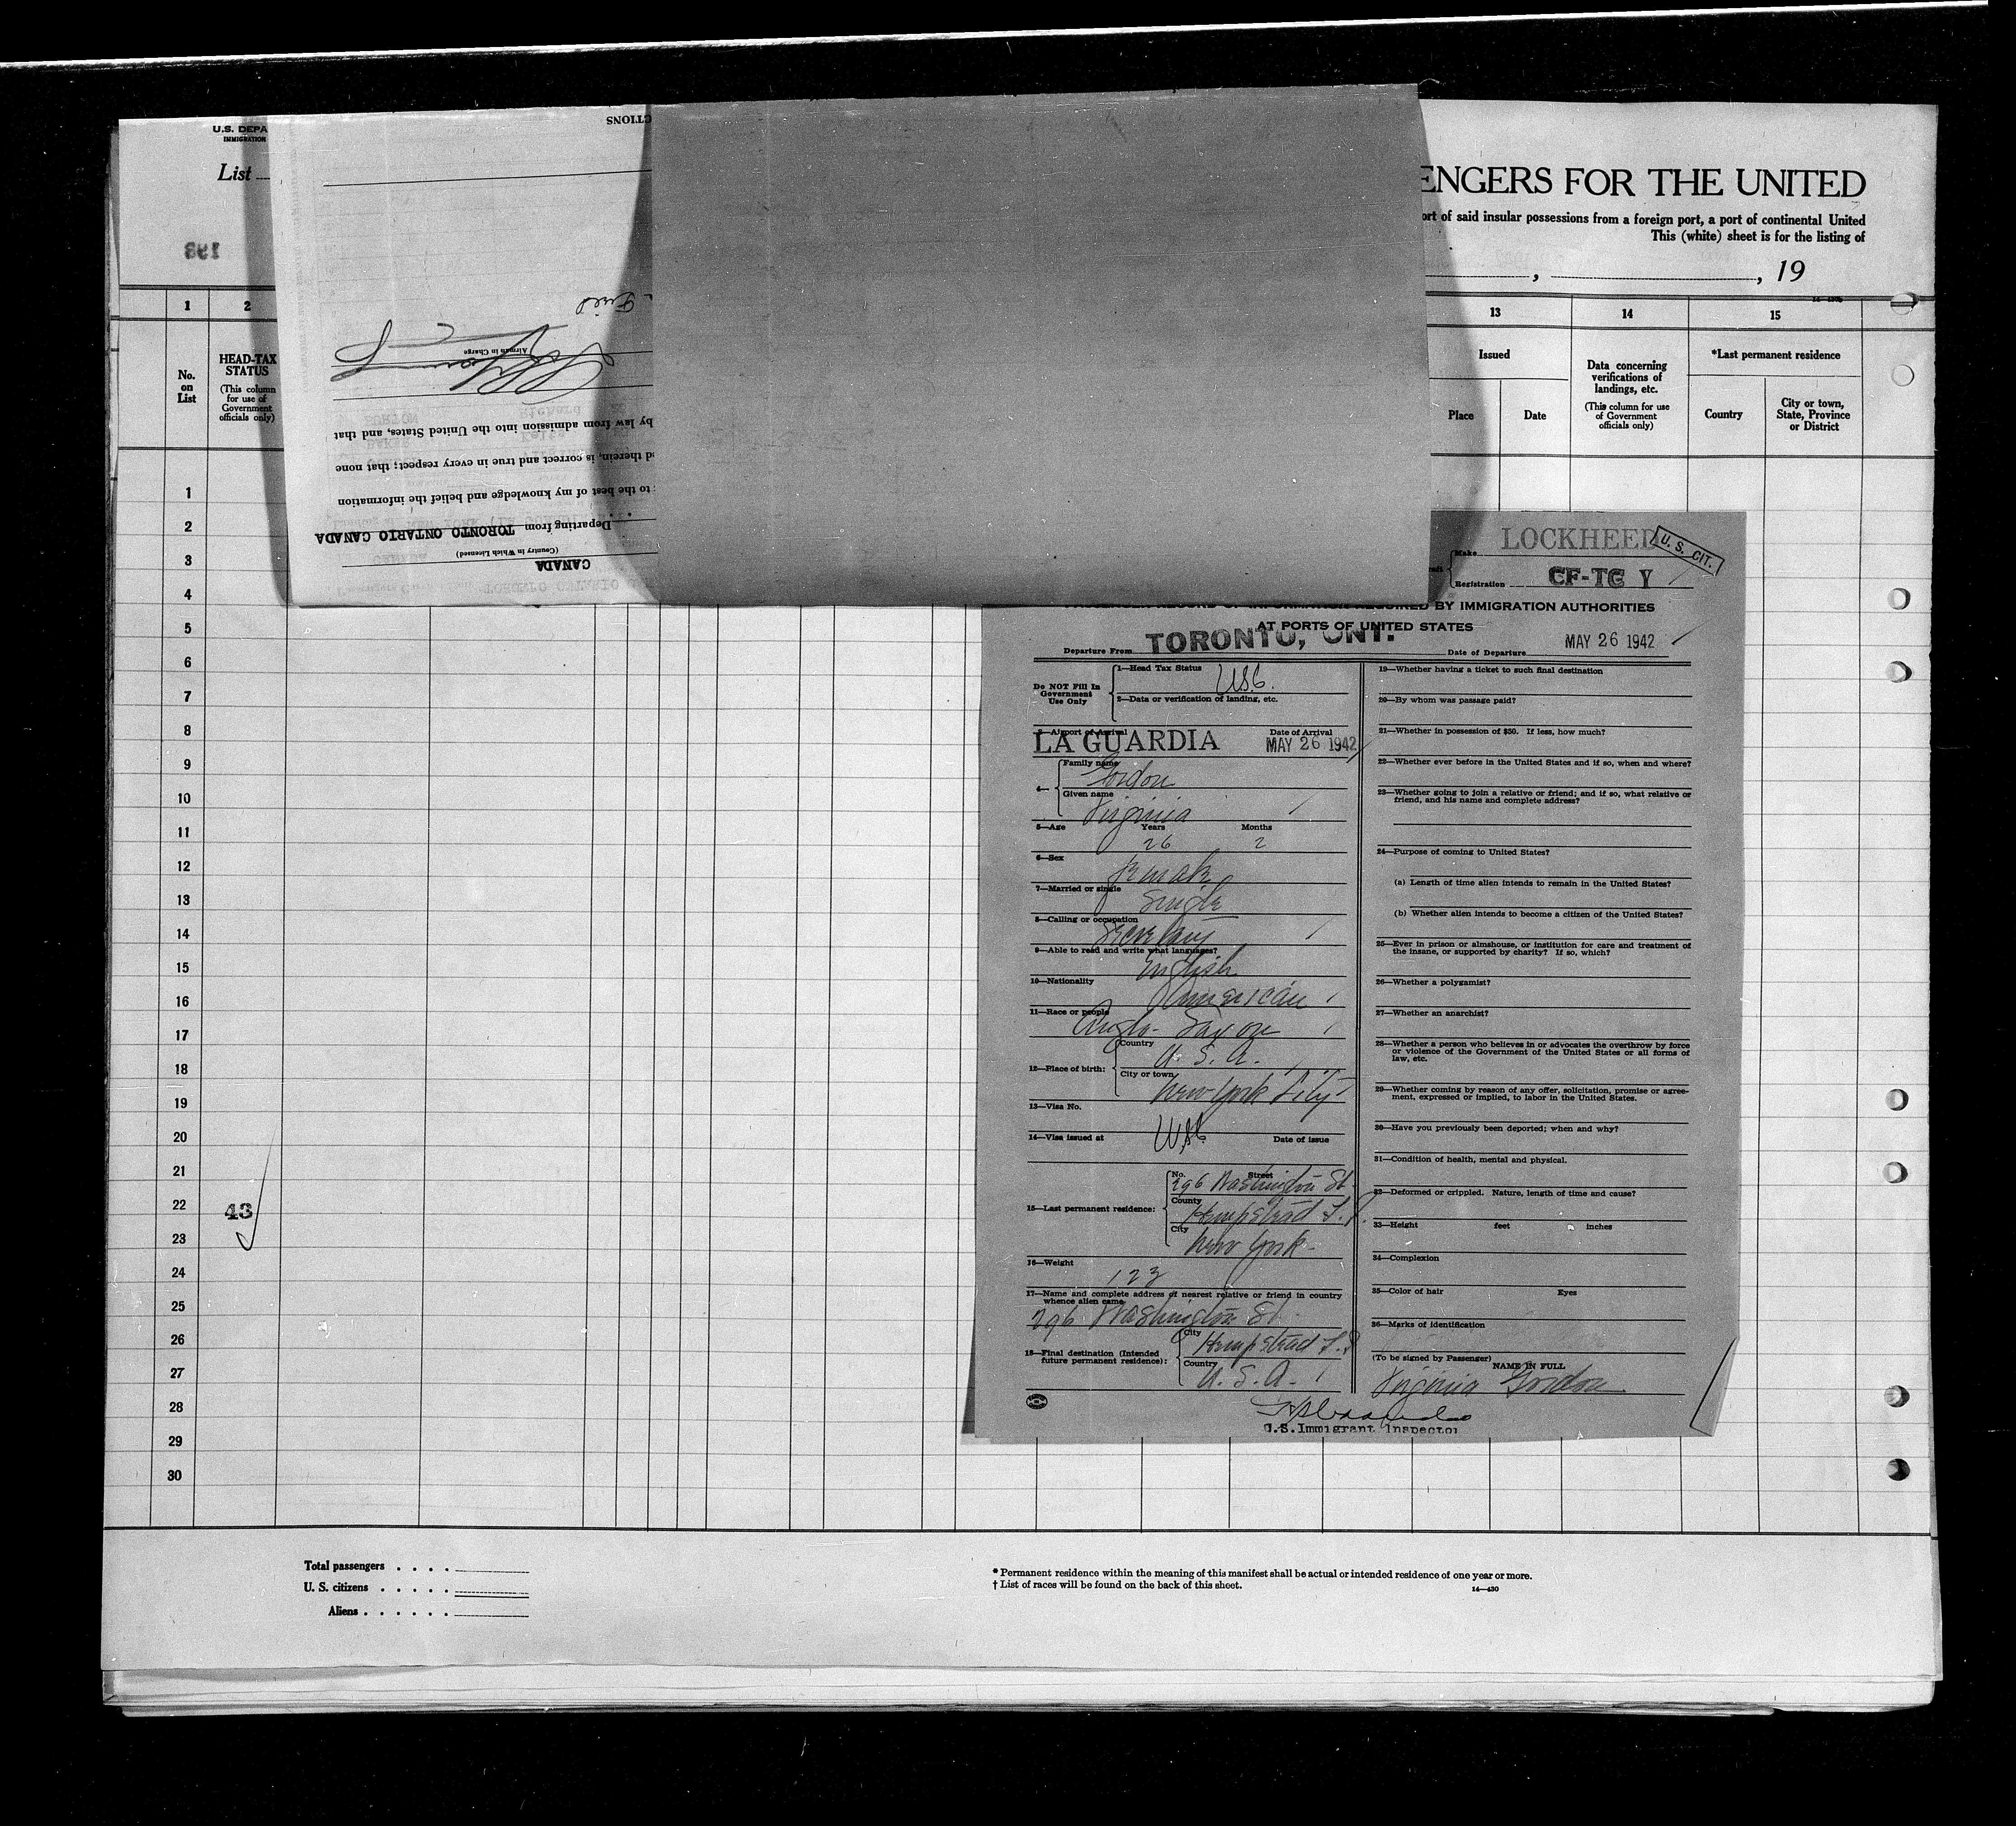 U.S. DEPA
IMMIGRATION
List
198
CTIONS
Airman in Charge
by law from admission into the United States, and that
d therein, is correct and true in every respect; that none
to the best of my knowledge and belief the information
Departing from TORONTO ONTARIO CANADA
(Country in Which Licensed)
CANADA
ENGERS FOR THE UNITED
ort of said insular possessions from a foreign port, a port of continental United
This (white) sheet is for the listing of
, , 19
1 2 13 14 15
No. on List
HEAD-TAX STATUS
(This column for use of Government officials only)
Issued
Place Date
Data concerning verifications of landings, etc.
(This column for use of Government officials only)
*Last permanent residence
Country
City or town, State, Province or District
1
2
3
4
5
6
7
8
9
10
11
12
13
14
15
16
17
18
19
20
21
22
43
23
24
25
26
27
28
29
30
Make LOCKHEED
U. S. CIT.
Registration CF-TG Y
BY IMMIGRATION AUTHORITIES
AT PORTS OF UNITED STATES
Departure From TORONTO, ONT. Date of Departure MAY 26 1942
Do NOT Fill In Government Use Only
1—Head Tax Status USC.
2—Data or verification of landing, etc.
3—Airport of Arrival Date of Arrival
LA GUARDIA MAY 26 1942
4— Family name Gordon
Given name Virginia
5—Age Years 26 Months 2
6—Sex Female
7—Married or single Single
8—Calling or occupation Secretary
9—Able to read and write what languages? English
10—Nationality American
11—Race or people Anglo-Saxon
12—Place of birth: Country U. S. A.
City or town New York City
13—Visa No.
14—Visa issued at USC Date of issue
15—Last permanent residence: No. Street 296 Washington St.
County Hempstead L.I.
City New York
16—Weight 123
17—Name and complete address of nearest relative or friend in country whence alien came
296 Washington St.
18—Final destination (Intended future permanent residence): City Hempstead L.I.
Country U. S. A.
19—Whether having a ticket to such final destination
20—By whom was passage paid?
21—Whether in possession of $50. If less, how much?
22—Whether ever before in the United States and if so, when and where?
23—Whether going to join a relative or friend; and if so, what relative or
friend, and his name and complete address?
24—Purpose of coming to United States?
(a) Length of time alien intends to remain in the United States?
(b) Whether alien intends to become a citizen of the United States?
25—Ever in prison or almshouse, or institution for care and treatment of
the insane, or supported by charity? If so, which?
26—Whether a polygamist?
27—Whether an anarchist?
28—Whether a person who believes in or advocates the overthrow by force
or violence of the Government of the United States or all forms of
law, etc.
29—Whether coming by reason of any offer, solicitation, promise or agree-
ment, expressed or implied, to labor in the United States.
30—Have you previously been deported; when and why?
31—Condition of health, mental and physical.
32—Deformed or crippled. Nature, length of time and cause?
33—Height feet inches
34—Complexion
35—Color of hair Eyes
36—Marks of identification
(To be signed by Passenger)
NAME IN FULL
Virginia Gordon
U.S. Immigrant Inspector
Total passengers . . . .
U. S. citizens . . . . .
Aliens . . . . . .
* Permanent residence within the meaning of this manifest shall be actual or intended residence of one year or more.
† List of races will be found on the back of this sheet.
14—430